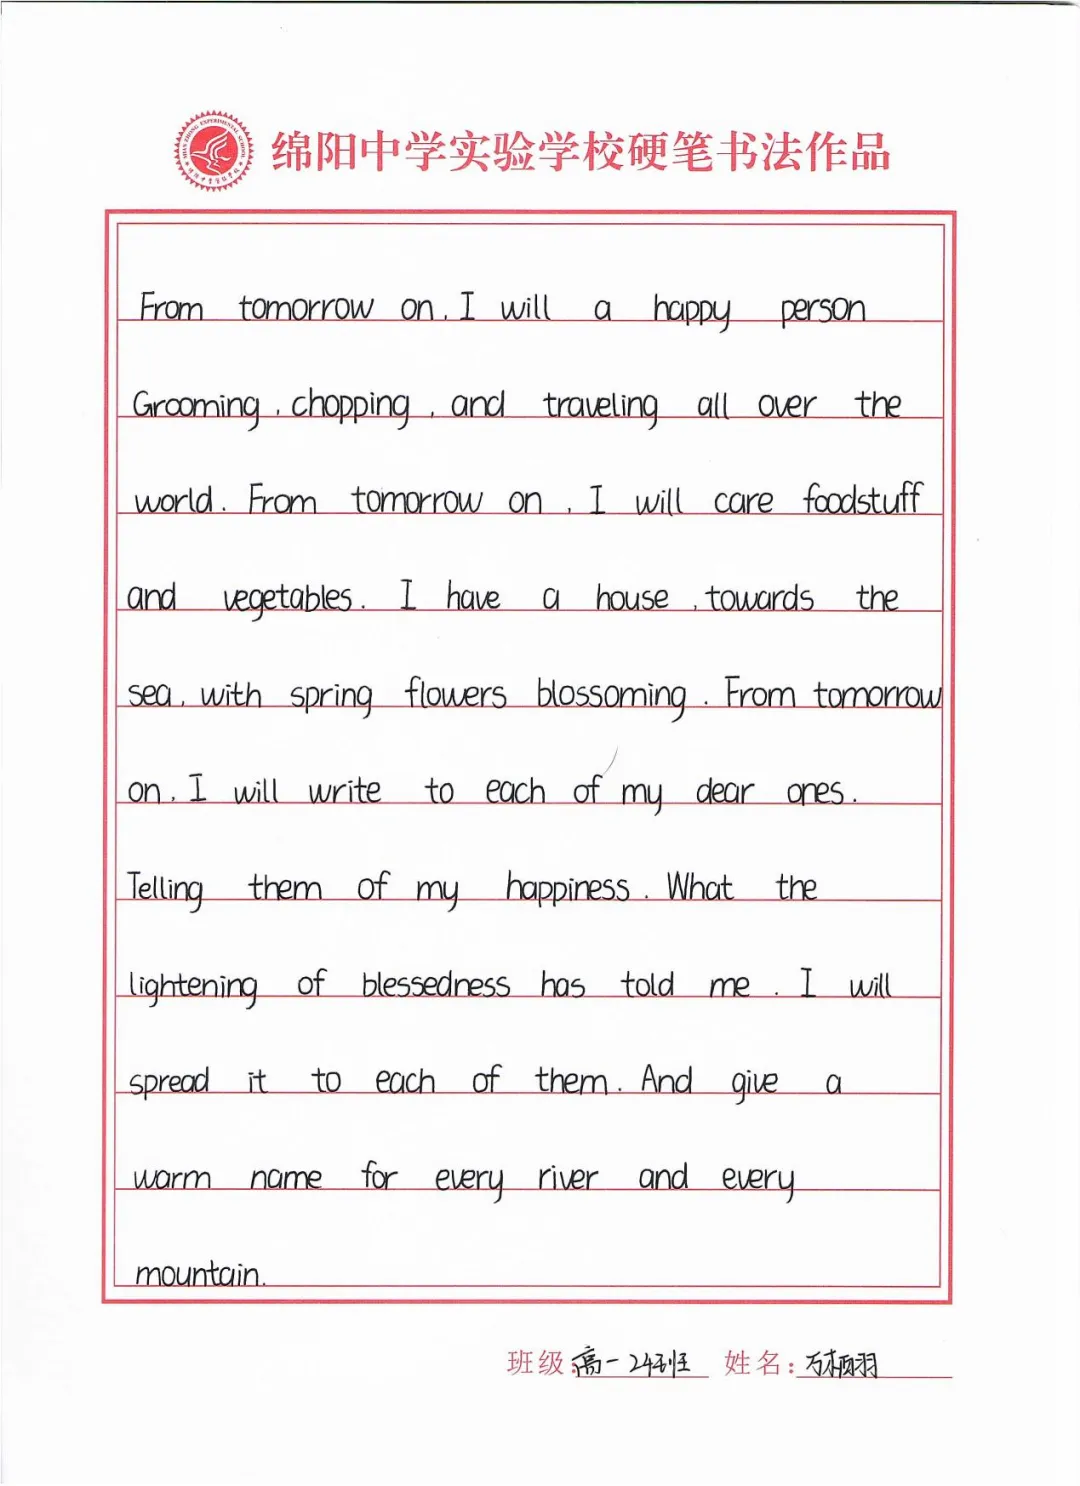 绵阳中学实验学校硬笔书法作品
From tomorrow on, I will a happy person
Grooming, chopping, and traveling all over the
world. From tomorrow on, I will care foodstuff
and vegetables. I have a house, towards the
sea, with spring flowers blossoming. From tomorrow
on, I will write to each of my dear ones.
Telling them of my happiness. What the
lightening of blessedness has told me. I will
spread it to each of them. And give a
warm name for every river and every
mountain.
班级:高一24班 姓名: